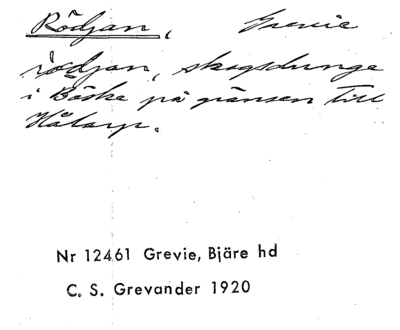 Rödjan, Grevie
rödjan, skogsdunge
i Böske på gränsen till
Hålarp.
Nr 12461 Grevie, Bjäre hd
C. S. Grevander 1920